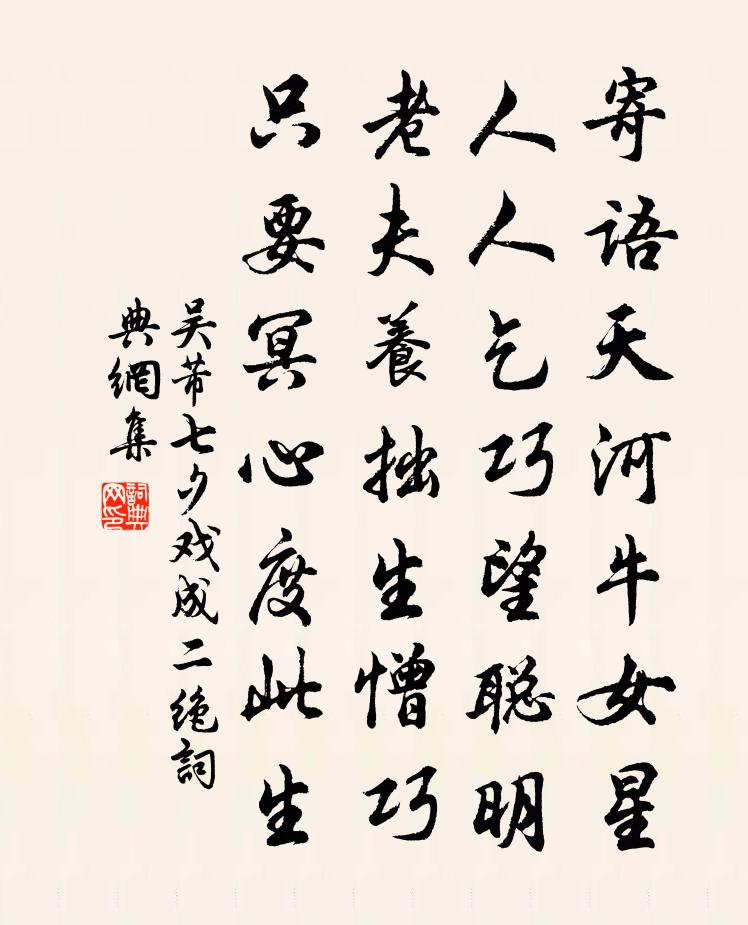 寄语天河牛女星
人人乞巧望聪明
老夫养拙生憎巧
只要冥心度此生
吴芾七夕戏成二绝詞
典網集
詞典
网印